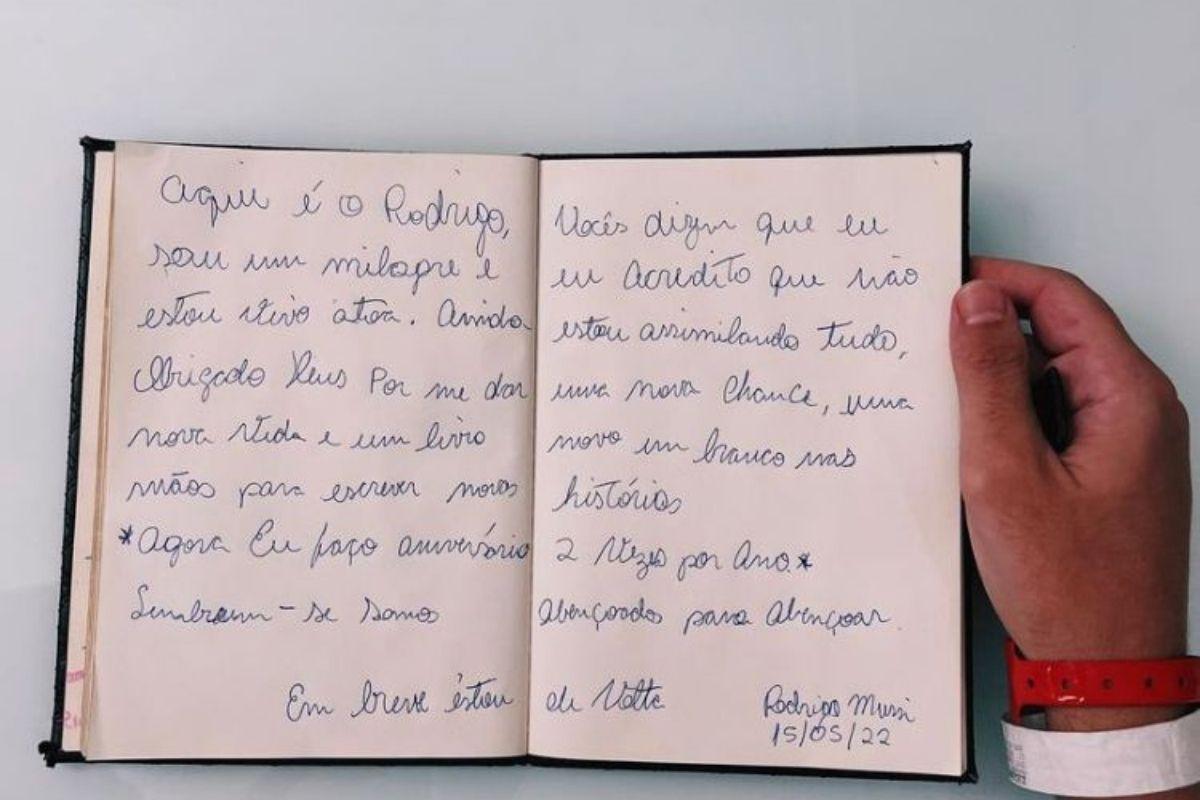 Aqui é o Rodrigo, Vocês dizem que eu
sou um milagre e eu Acredito que não
estou vivo atoa. Ainda estou assimilando tudo,
Obrigado Deus Por me dar uma nova chance, uma
nova vida e um livro novo em branco nas
mãos para escrever novas histórias
*Agora Eu faço aniversário 2 Vezes por Ano*
Lembrem-se somos Abençoados para Abençoar.
Em breve estou de Volta
Rodrigo Mussi
15/05/22